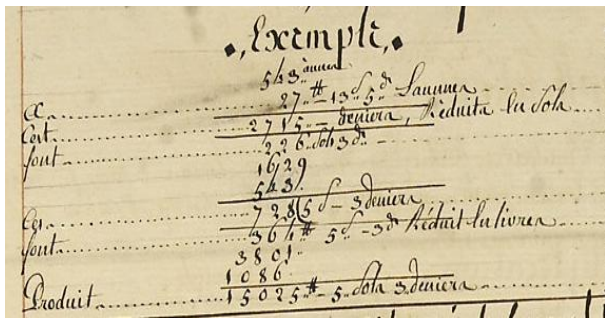 Exemple,
543 aunes
A ........ 27 ₶ - 13 s 5 d L'aunne
C'est ........ 2715 - deniers, Réduits En Sols
font ........ 226 Sols 3 d
1629
543.
Ces ........ 728(5 s - 3 deniers
font ........ 364 ₶ 5 s - 3 d Réduit En livres
3801.
1086
Produit ........ 15025 ₶ - 5 Sols 3 deniers